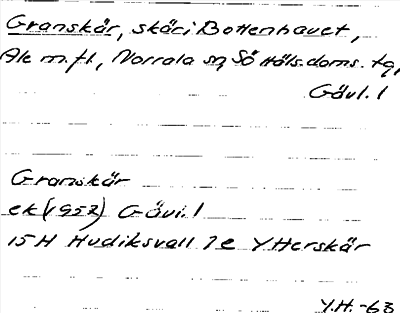 Granskär, skär i Bottenhavet,
Ale m.fl., Norrala sn, Sö Häls. doms. tg,
Gävl. l
Granskär
ek (1952) Gävl. l
15 H Hudiksvall 7 e Ytterskär
Y.H. -63